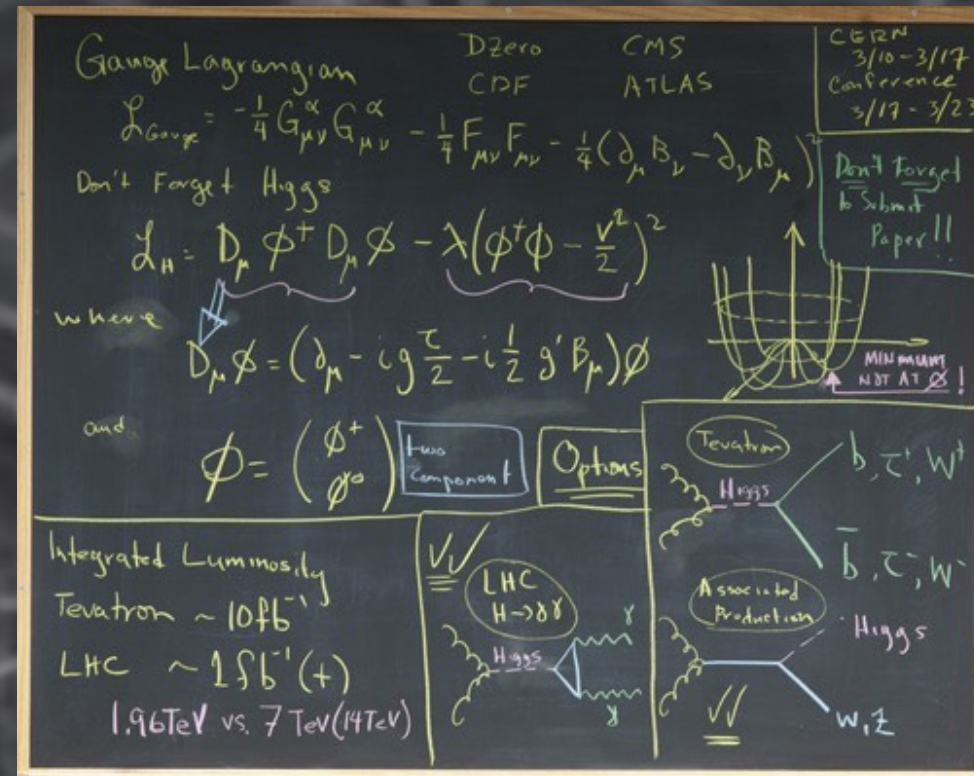 Gauge Lagrangian
DZero CMS
CDF ATLAS
CERN
3/10-3/17
Conference
3/17-3/23
ℒ_Gauge = -1/4 G^α_μν G^α_μν - 1/4 F_μν F_μν - 1/4 (∂_μ B_ν - ∂_ν B_μ)^2
Don't Forget
to Submit
Paper!!
Don't Forget Higgs
ℒ_H = D_μ ϕ^† D_μ ϕ - λ(ϕ^†ϕ - v^2/2)^2
where
D_μ ϕ = (∂_μ - i g τ/2 - i 1/2 g' B_μ)ϕ
NOT AT ϕ!
and
ϕ = (ϕ^+
ϕ^o)
two
component
Options
Tevatron
Higgs
b, τ^+, W^+
b̄, τ^-, W^-
Integrated Luminosity
Tevatron ~ 10fb^-1
LHC ~ 1fb^-1 (+)
1.96TeV vs. 7 TeV(14TeV)
LHC
H→γγ
Higgs
γ
γ
Associated
Production
Higgs
W, Z